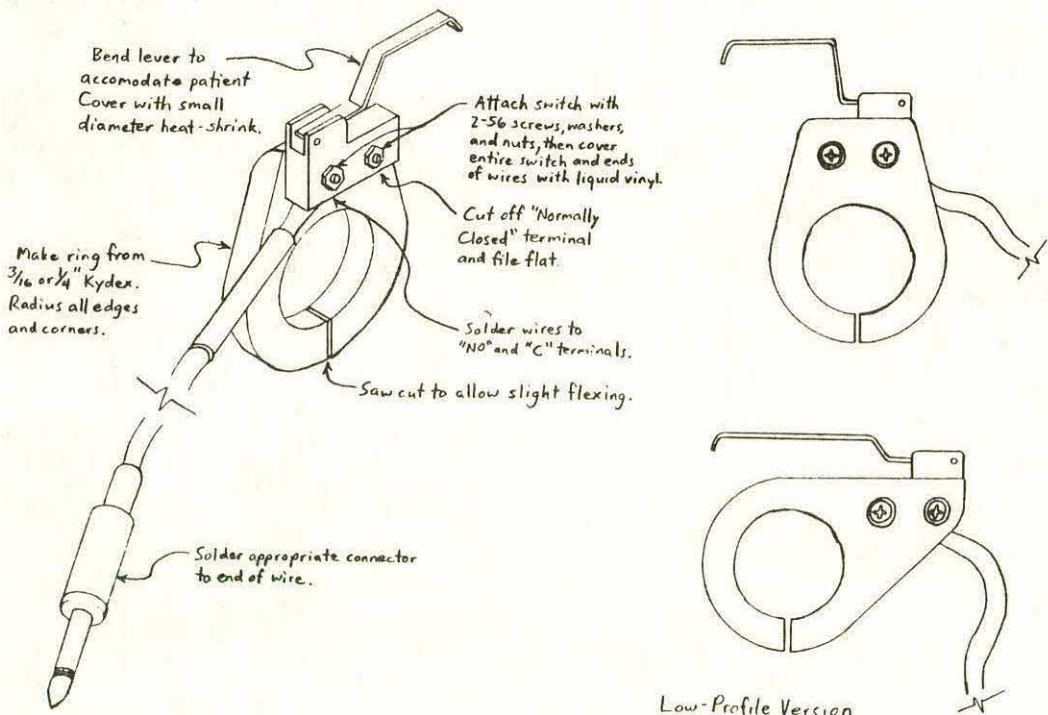 Bend lever to
accomodate patient
Cover with small
diameter heat-shrink.
Attach switch with
2-56 screws, washers,
and nuts, then cover
entire switch and ends
of wires with liquid vinyl.
Cut off "Normally
Closed" terminal
and file flat.
Make ring from
3/16 or 1/4" Kydex.
Radius all edges
and corners.
Solder wires to
"NO" and "C" terminals.
Saw cut to allow slight flexing.
Solder appropriate connector
to end of wire.
Low-Profile Version